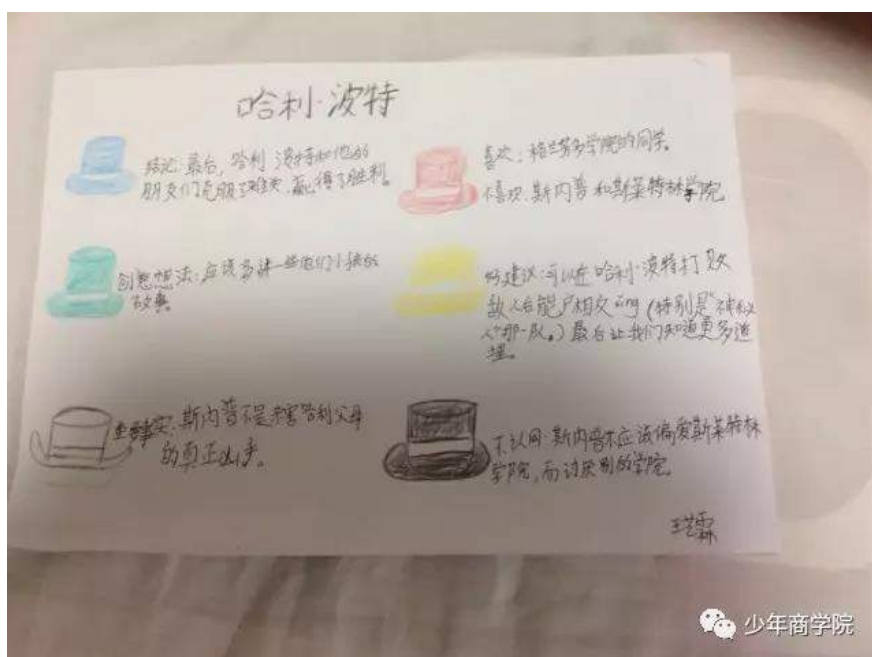 哈利·波特
结论:最后,哈利·波特和他的
朋友们克服了难关,赢得了胜利。
喜欢:格兰芬多学院的同学。
不喜欢:斯内普和斯莱特林学院
创意想法:应该多讲一些他们小孩的
故事
好建议:可以在哈利·波特打败
敌人后能户相交ing(特别是"神秘
人"那一队。)最后让我们知道更多道
理。
事实:斯内普不是杀害哈利父母
的真正凶手。
不认同:斯内普不应该偏爱斯莱特林
学院,而讨厌别的学院。
王艺霖
少年商学院